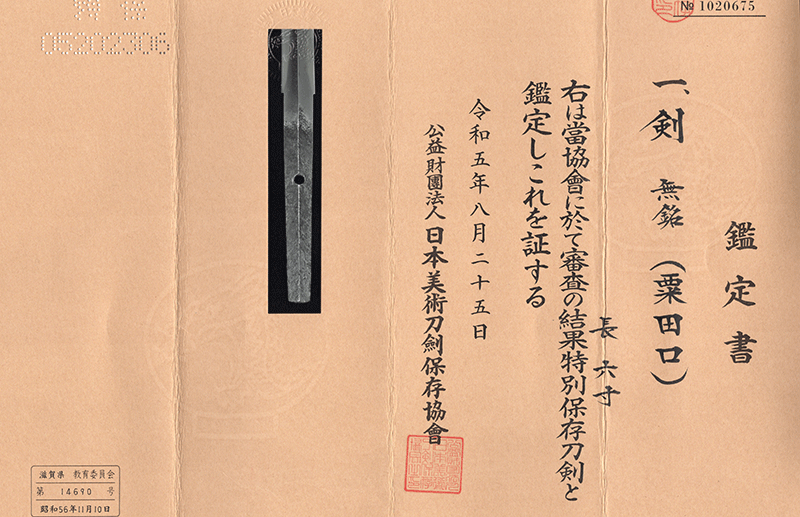 № 1020675
鑑定書
一、剣 無銘（粟田口）
長 六寸
右は當協會に於て審査の結果特別保存刀剣と
鑑定しこれを証する
令和五年八月二十五日
公益財團法人 日本美術刀劍保存協會
05202306
滋賀県 教育委員会
第 14690 号
昭和56年11月10日